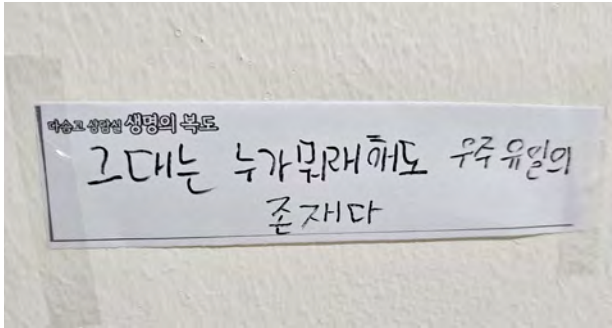 다솜고 상담실 생명의 복도
그대는 누가뭐래해도 우주 유일의
존재다